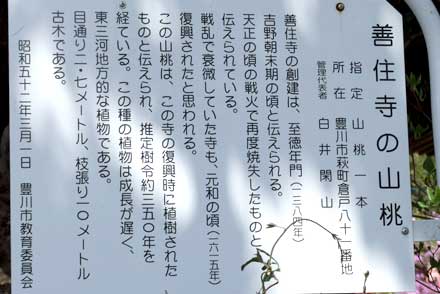 善住寺の山桃
指定 山桃一本
所在 豊川市萩町倉戸八十一番地
管理代表者 白井閑山
善住寺の創建は、至徳年門(一三八四年)
吉野朝末期の頃と伝えられる。
天正の頃の戦火で再度焼失したものと
伝えられている。
戦乱で衰微していた寺も、元和の頃(一六一五年)
復興されたと思われる。
この山桃は、この寺の復興時に植樹された
ものと伝えられ、推定樹令約三五〇年を
経ている。この種の植物は成長が遅く、
東三河地方的な植物である。
目通り二・七メートル、枝張り一〇メートル
古木である。
昭和五十二年三月一日 豊川市教育委員会